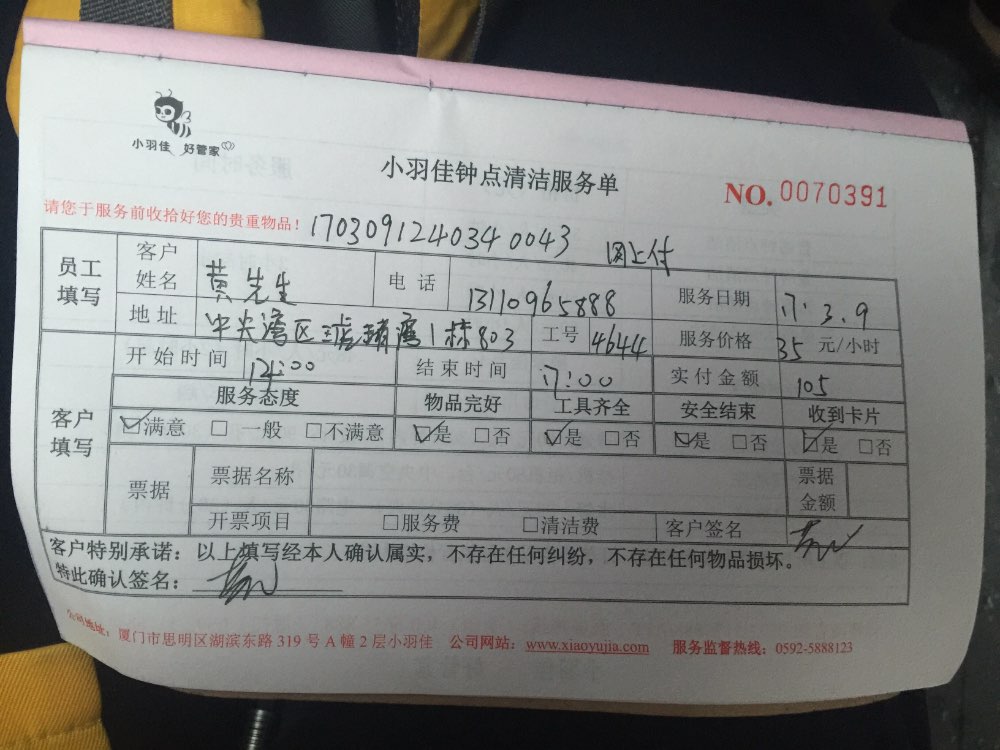 小羽佳 好管家
小羽佳钟点清洁服务单
NO. 0070391
请您于服务前收拾好您的贵重物品!
170309124034 0043 网上付
员工填写 客户姓名 黄先生 电话 13110965888 服务日期 17.3.9
地址 中央湾区 1栋803 工号 4644 服务价格 35 元/小时
客户填写 开始时间 14:00 结束时间 17:00 实付金额 105
服务态度 物品完好 工具齐全 安全结束 收到卡片
☑满意 □ 一般 □不满意 ☑是 □否 ☑是 □否 ☑是 □否 ☑是 □否
票据 票据名称 票据金额
开票项目 □服务费 □清洁费 客户签名
客户特别承诺:以上填写经本人确认属实,不存在任何纠纷,不存在任何物品损坏。
特此确认签名:
公司地址:厦门市思明区湖滨东路 319 号 A 幢 2 层小羽佳 公司网站:www.xiaoyujia.com 服务监督热线:0592-5888123